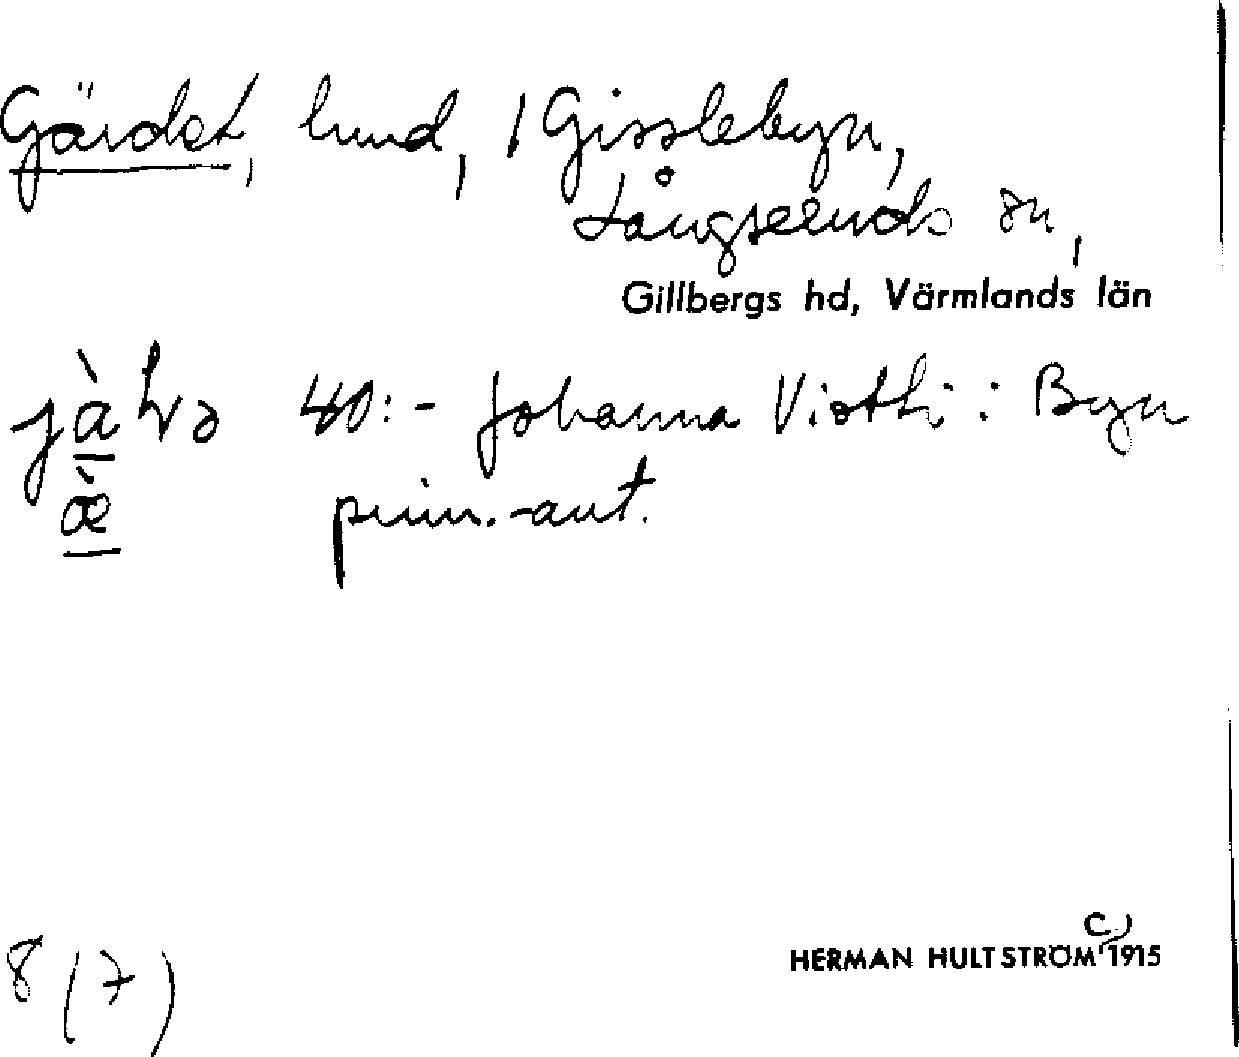 Gärdet, lund, / Gisslebyn,
Långseruds sn,
Gillbergs hd, Värmlands län
40:- Johanna : Byn
prim.-ant.
8 (7)
HERMAN HULTSTRÖM C) 1915